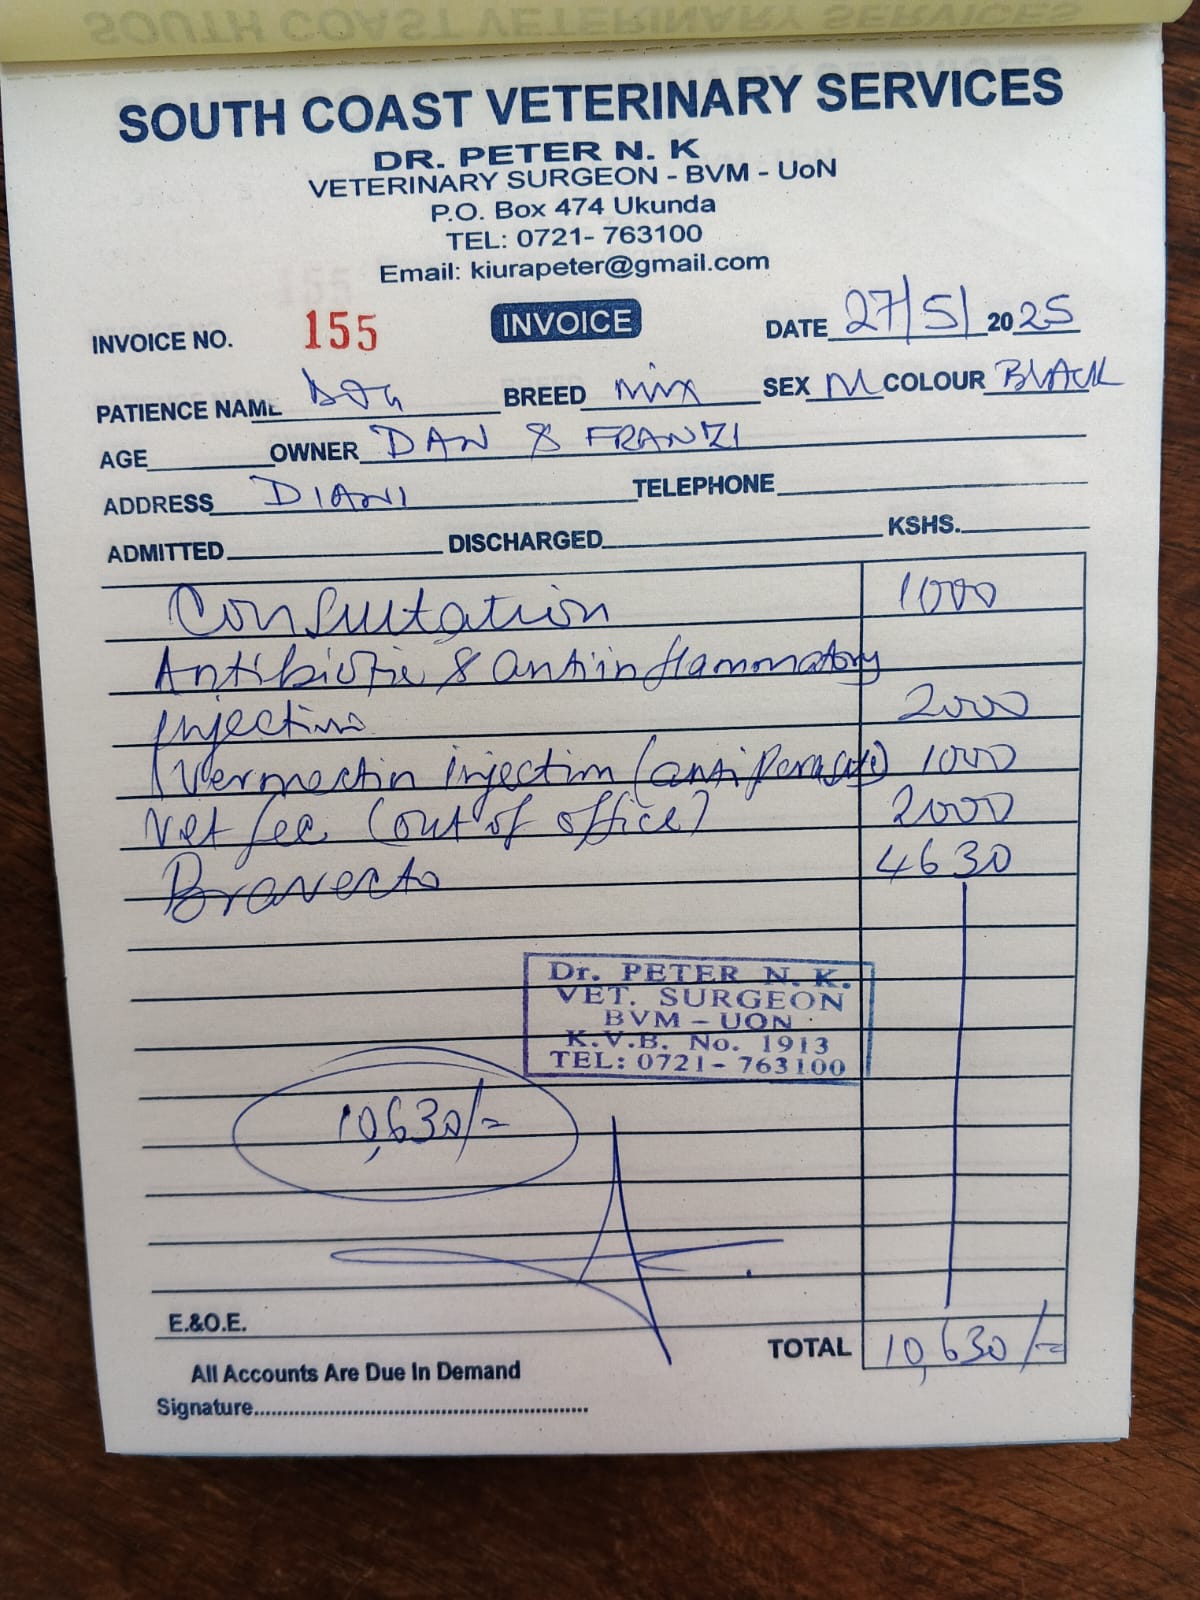 SOUTH COAST VETERINARY SERVICES
DR. PETER N. K
VETERINARY SURGEON - BVM - UoN
P.O. Box 474 Ukunda
TEL: 0721- 763100
Email: kiurapeter@gmail.com
INVOICE NO. 155 INVOICE DATE 27/5/ 2025
PATIENCE NAME DOG BREED mix SEX M COLOUR BLACK
AGE OWNER DAN & FRANZI
ADDRESS DIANI TELEPHONE
ADMITTED DISCHARGED KSHS.
Consultation 1000
Antibiotic & antiinflammatory
injection 2000
Ivermectin injection (antiparasite) 1000
Vet fee (out of office) 2000
Bravecto 4630
Dr. PETER N. K.
VET. SURGEON
BVM - UON
K.V.B. No. 1913
TEL: 0721- 763100
10,630/=
E.&O.E.
TOTAL 10,630/=
All Accounts Are Due In Demand
Signature